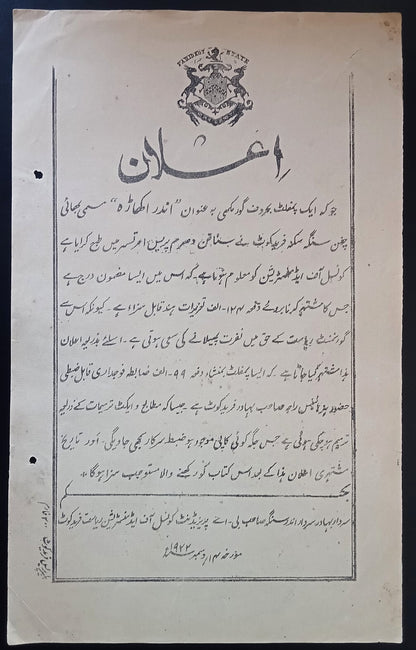 FARIDKOT STATE
اعلان
جو کہ ایک پمفلٹ بحروف گورمکھی بہ عنوان "اندر اکھاڑہ" مسمی بھائی
سنگھ سکنہ فریدکوٹ نے سناتن دھرم پریس امرتسر میں طبع کرایا ہے
کونسل آف ایڈمنسٹریشن کو معلوم ہوتا ہے۔ کہ اس میں ایسا مضمون درج ہے
جس کا مشتہر کرنا بروئے دفعہ ۱۲۴-الف تعزیرات ہند قابل سزا ہے۔ کیونکہ اس سے
گورنمنٹ ریاست کے حق میں نفرت پھیلانے کی سعی ہوتی ہے۔ اسلئے بذریعہ اعلان
ہذا مشتہر کیا جاتا ہے کہ ایسا پمفلٹ بمنشاء دفعہ ۹۹-الف ضابطہ فوجداری قابل ضبطی
حضور ہزہائینس راجہ صاحب بہادر فریدکوٹ ہے۔ جیسا کہ مطابع و ایکٹ ترمیمات کے ذریعہ
ترمیم ہو چکی ہوئی ہے جس جگہ کوئی کاپی موجود ہو ضبط سرکار کیجاویگی۔ اور تاریخ
مشتہری اعلان ہذا کے بعد اس کتاب کو رکھنے والا مستوجب سزا ہوگا
بحکم
سردار بہادر سردار اندر سنگھ صاحب بی-اے پریزیڈنٹ کونسل آف ایڈمنسٹریشن ریاست فریدکوٹ
مورخہ ۱۴ دسمبر ۱۹۲۲ء